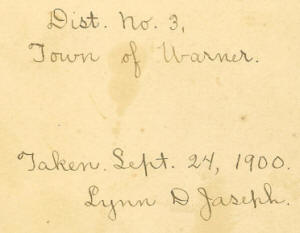 Dist. No. 3,
Town of Warner.
Taken. Sept. 24, 1900.
Lynn D Jaseph.